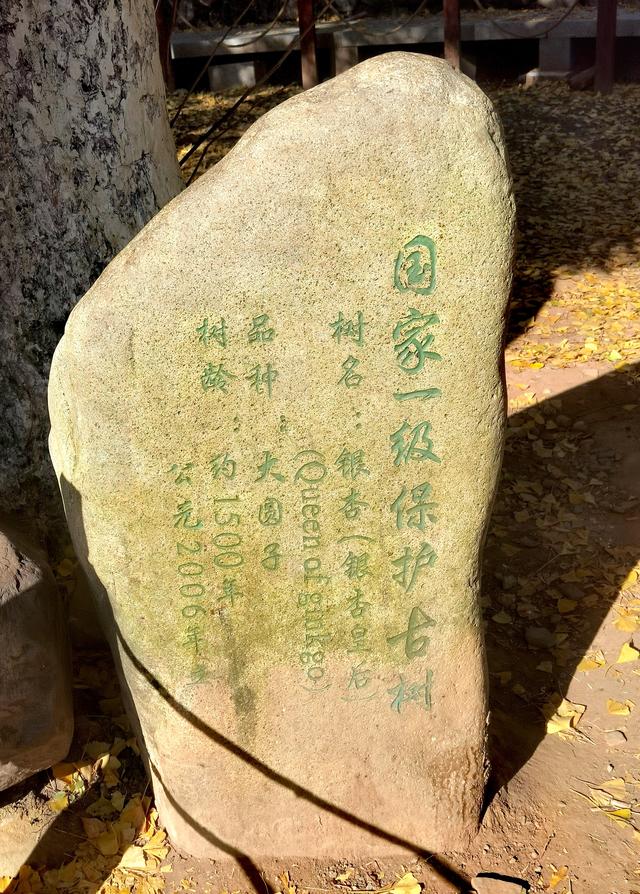 国家一级保护古树
树名：银杏(银杏皇后)
(Queen of ginkgo)
品种：大圆子
树龄：约1500年
公元2006年立